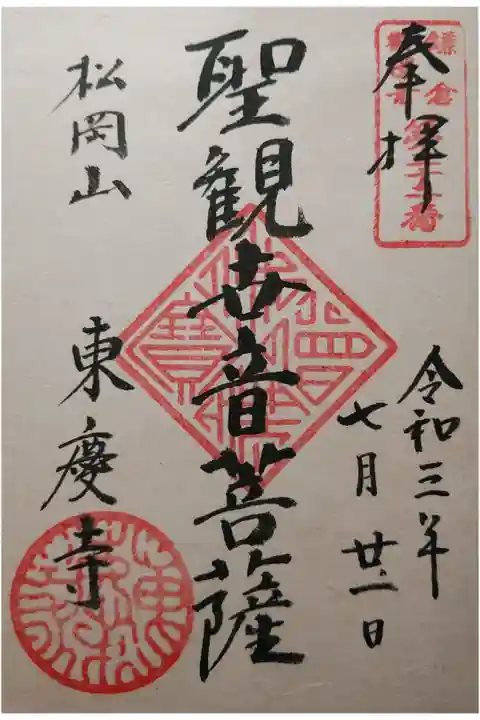 奉拝
聖観世音菩薩
松岡山
東慶寺
令和三年
七月廿一日